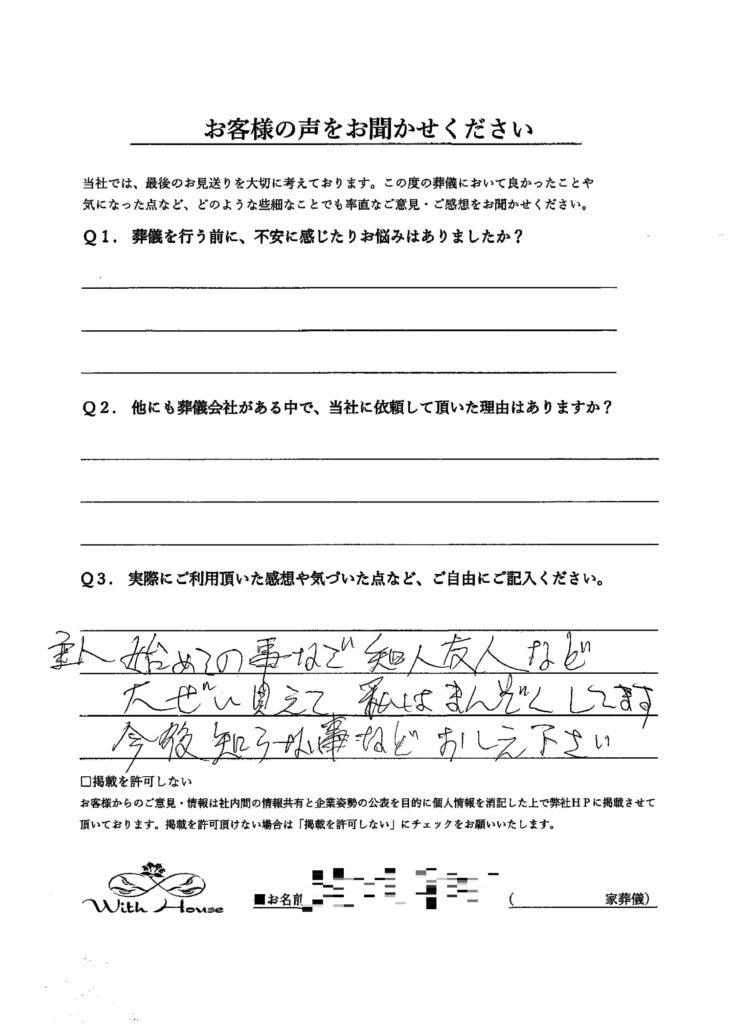 お客様の声をお聞かせください
当社では、最後のお見送りを大切に考えております。この度の葬儀において良かったことや
気になった点など、どのような些細なことでも率直なご意見・ご感想をお聞かせください。
Q1. 葬儀を行う前に、不安に感じたりお悩みはありましたか？
Q2. 他にも葬儀会社がある中で、当社に依頼して頂いた理由はありますか？
Q3. 実際にご利用頂いた感想や気づいた点など、ご自由にご記入ください。
始めての事なで 知人友人など
大ぜい見えて 私はまんぞくしてます
今後知らない事など おしえ下さい
□掲載を許可しない
お客様からのご意見・情報は社内間の情報共有と企業姿勢の公表を目的に個人情報を消記した上で弊社HPに掲載させて
頂いております。掲載を許可頂けない場合は「掲載を許可しない」にチェックをお願いいたします。
With House
■お名前
( 家葬儀)